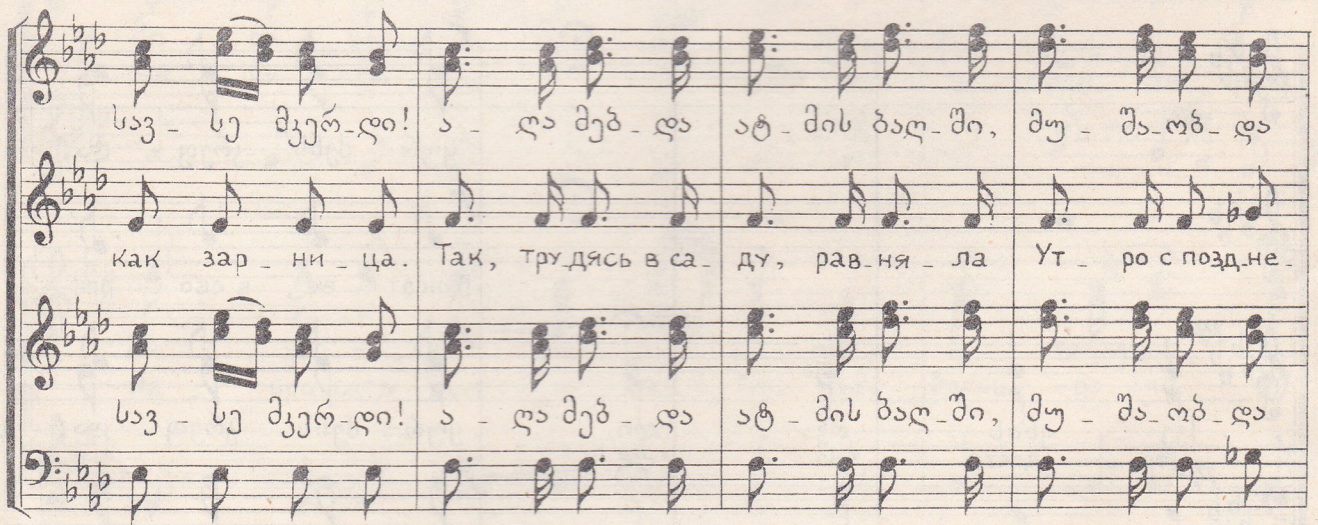 სავ_ სე მკერ_დი! ა - ღა მებ_ და ატ_ მის ბაღ_ში, მუ_ შა_ობ_და
как зар_ ни_ ца. Так, тру_дясь в са_ ду, рав_ня_ ла Ут_ ро с позд_не_
სავ_ სე მკერ_დი! ა - ღა მებ_ და ატ_ მის ბაღ_ში, მუ_ შა_ობ_და